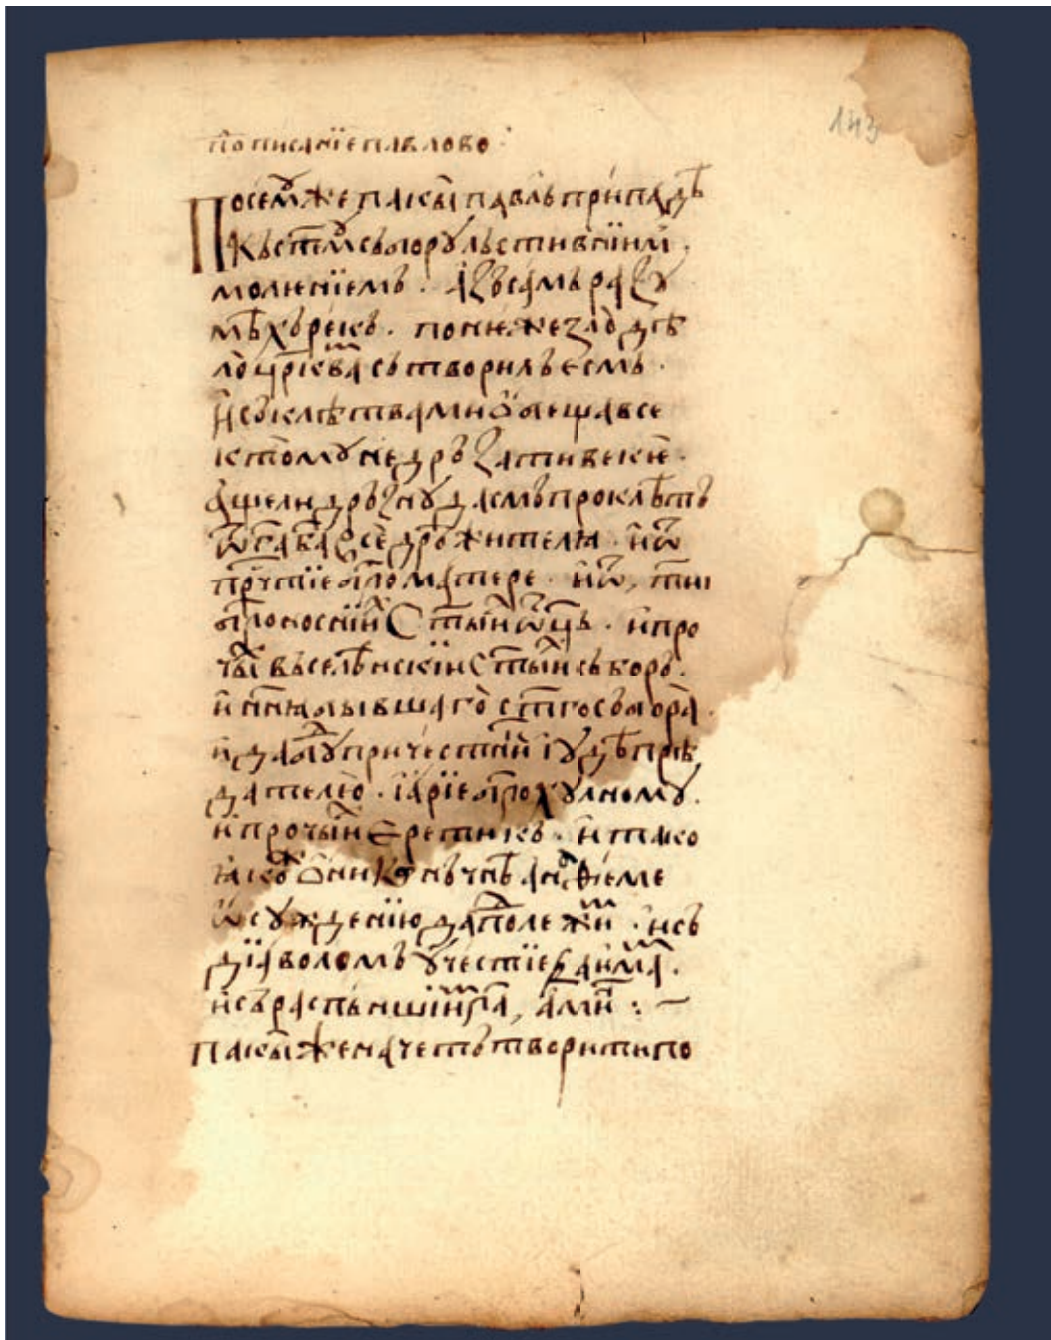 по писанїе павлово
Посемꙋже пакы павль припадъ
къ стмꙋ съборꙋ льстивнїим
моленїемь. азь самь разꙋ
мѣхь рекь. понеже зло дѣ
ло цркви сътвориль есмь.
и со клѣтвами обещавсе
к томꙋ не дрьзати
аще ли дрьзнꙋ да есмь проклѣть
ѿ ба вседрьжителꙗ. и ѿ
прчтїе его матере. и ѿ тиі
богоносних стых ѿць. и про
чїих въселѣнскїих стых съборь.
и нина бывшаго стго събора.
и да бꙋдꙋ причестнїй іꙋдѣ прѣ
дателю. їарїе богохꙋлномꙋ.
и прочым еретикь. и тако
ꙗко
ѿсꙋжденїю да подлежи. и сь
дїаволомь ꙋчестїе да има.
и сь распьншїи га, амин :~
пакы же начеть творити по